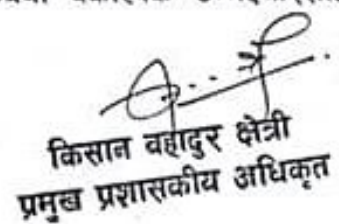 किसान वहादुर क्षेत्री
प्रमुख प्रशासकीय अधिकृत